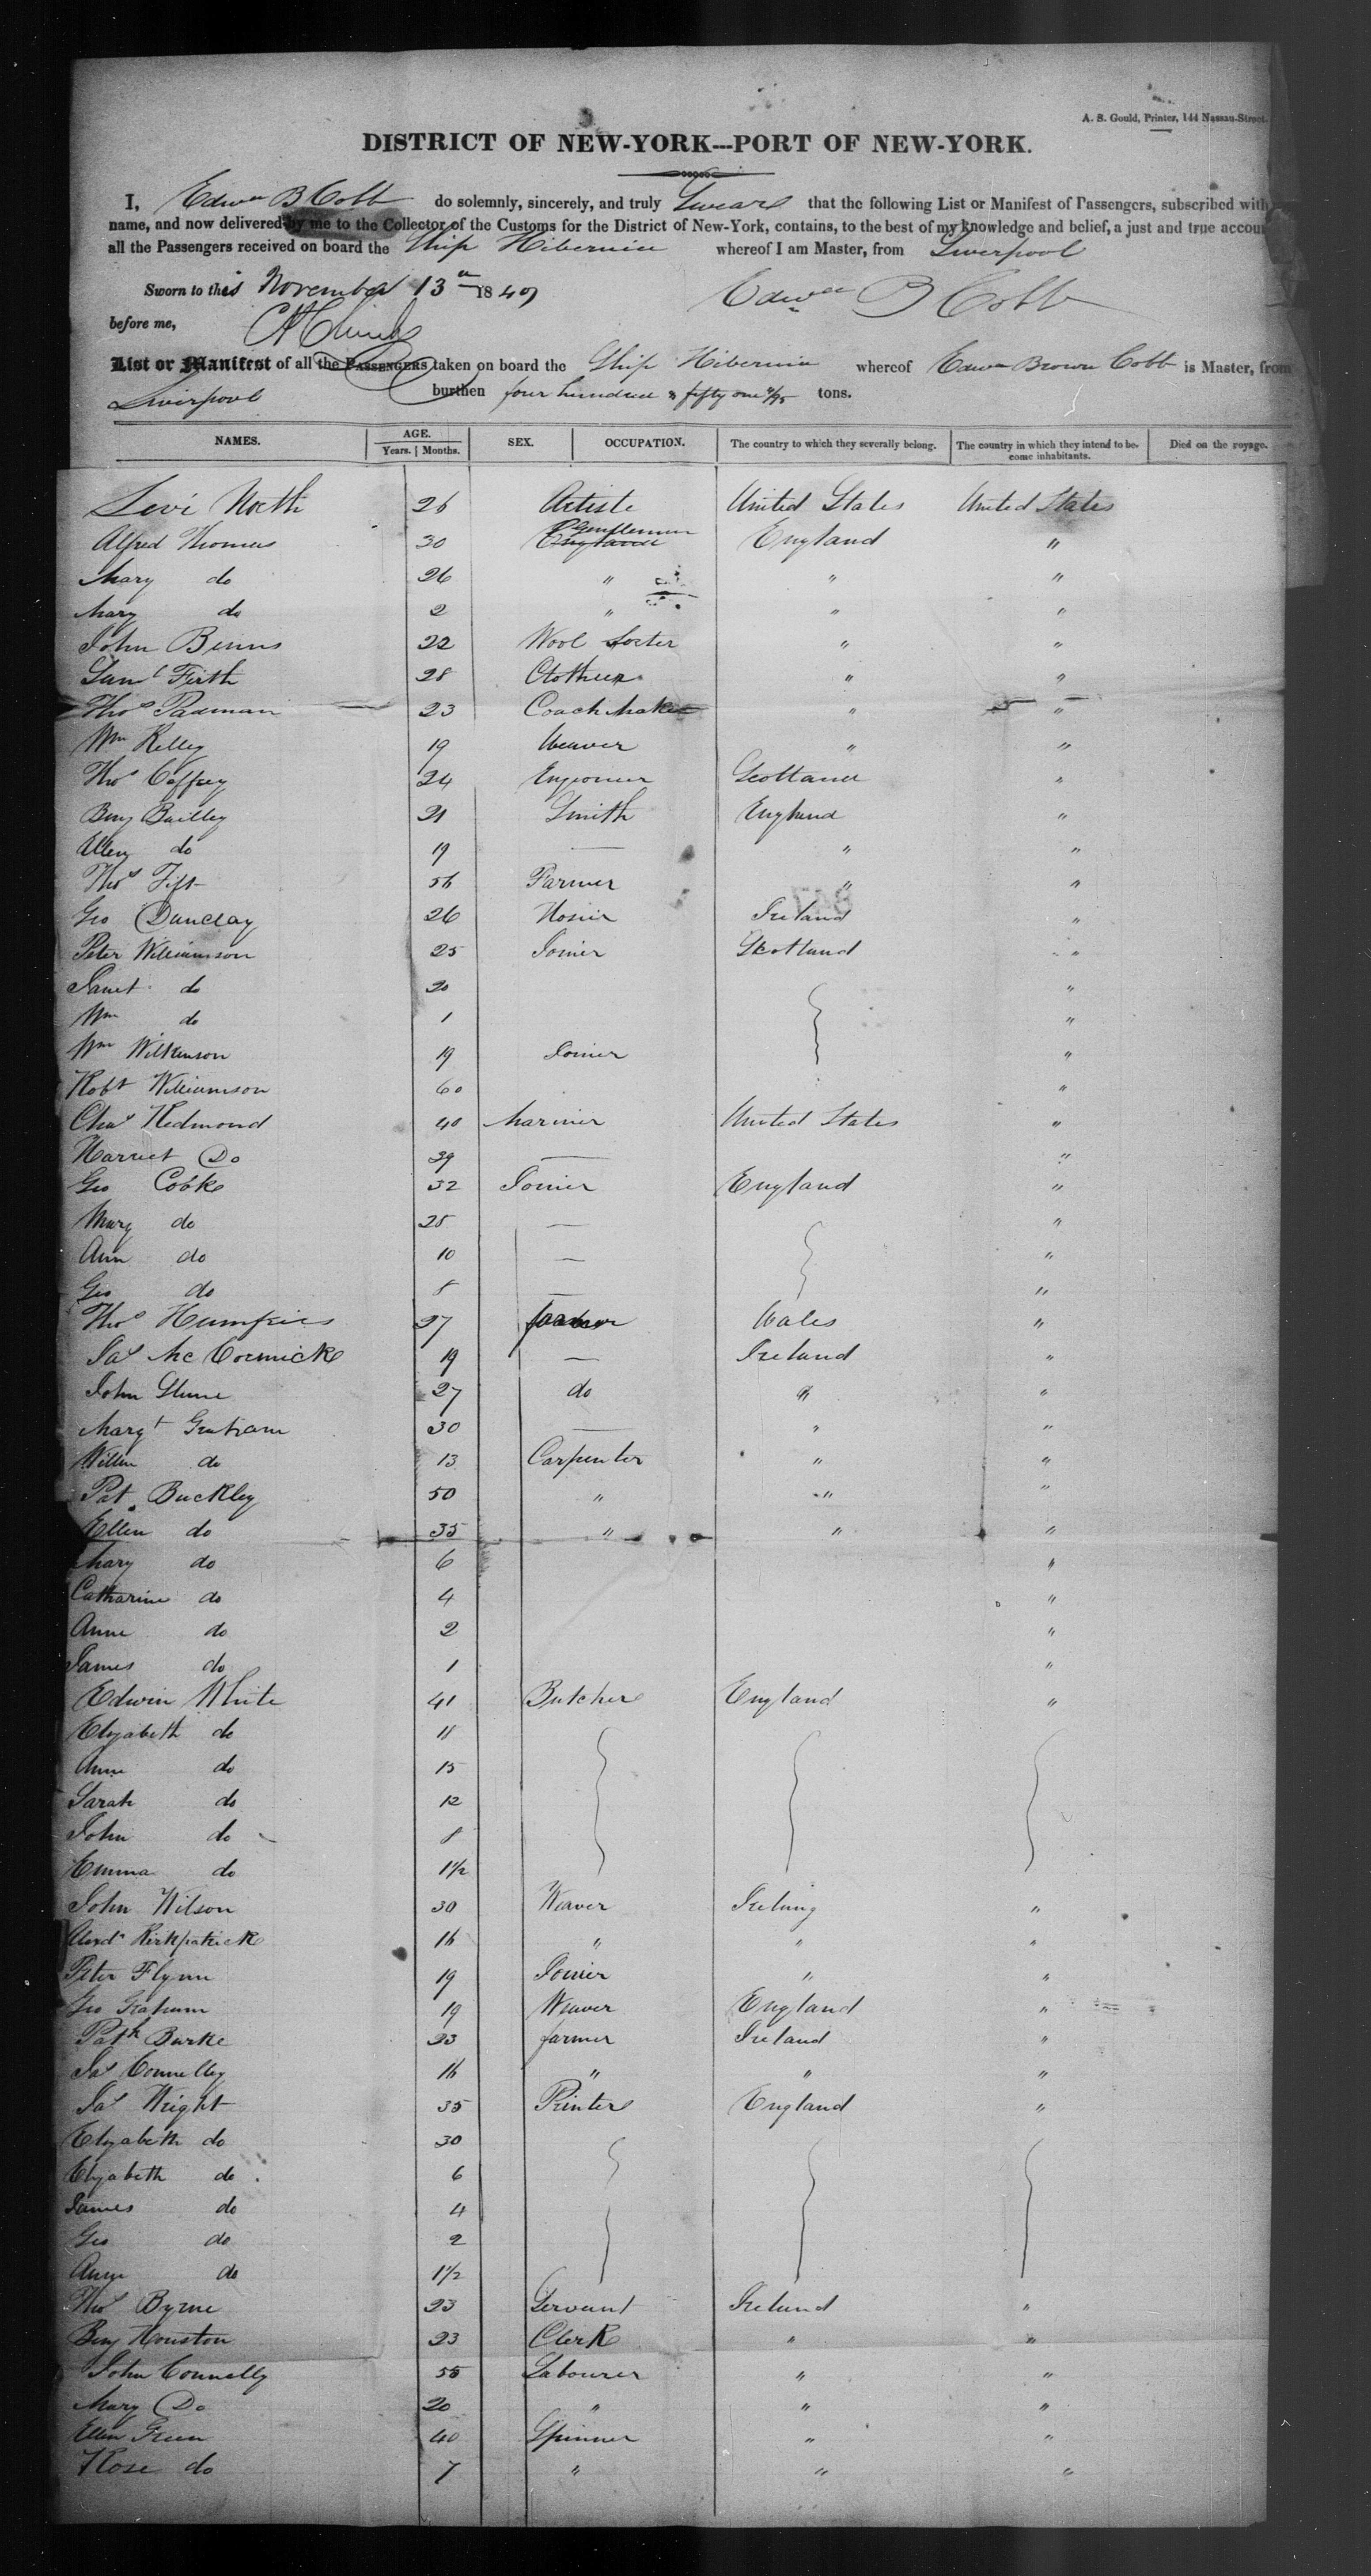 A. S. Gould, Printer, 144 Nassau-Street.
DISTRICT OF NEW-YORK---PORT OF NEW-YORK.
I, Edwn B Cobb do solemnly, sincerely, and truly Swear that the following List or Manifest of Passengers, subscribed with
name, and now delivered by me to the Collector of the Customs for the District of New-York, contains, to the best of my knowledge and belief, a just and true accou
all the Passengers received on board the Ship Hibernia whereof I am Master, from Liverpool
Sworn to this November 13th 1840 Edwn B Cobb
before me,
List or Manifest of all the PASSENGERS taken on board the Ship Hibernia whereof Edwn Brown Cobb is Master, from
Liverpool burthen four hundred & fifty one /95 tons.
NAMES. AGE. SEX. OCCUPATION. The country to which they severally belong. The country in which they intend to be- Died on the voyage.
Years. Months. come inhabitants.
Levi North 26 Artiste United States United States
Gentleman
Alfred Thomas 30 England England "
Mary do 26 " " "
Mary do 2 " " "
John Binns 22 Wool Sorter " "
Saml Firth 28 Clothier " "
Thos Padman 23 Coach Maker " "
Wm Kelley 19 Weaver " "
Thos Caffrey 24 Engioneer Scotland "
Benj Bailley 21 Smith England "
Ellen do 19 — " "
Thos Fift 56 Farmer " "
Geo Dunclay 26 Hosier Ireland "
Peter Williamson 25 Joiner Skotland "
Janet do 30 "
Wm do 1 "
Wm Wilkinson 19 Joiner "
Robt Williamson 60 "
Chas Redmond 40 Mariner United States "
Harriet Do 39 — "
Geo Cobke 32 Joiner England "
Mary do 28 — "
Ann do 10 — "
Geo do 8 — "
Thos Humfries 27 farmer Wales "
Jas McCormick 19 — Ireland "
John 27 do " "
Margt Graham 30 — " "
Willm do 13 Carpenter " "
Pat Buckley 50 " " "
Ellen do 35 " " "
Mary do 6 "
Catharine do 4 "
Anne do 2 "
James do 1 "
Edwin White 41 Butcher England "
Elizabeth do 11
Anne do 15
Sarah do 12
John do 8
Emma do 1½
John Wilson 30 Weaver "
Alexdr Kirkpatrick 16 " " "
Peter Flynn 19 Joiner " "
Geo Graham 19 Weaver England "
Patk Burke 23 farmer Ireland "
Jas Connelley 16 " " "
Jas Wright 35 Printer England "
Elizabeth do 30
Elizabeth do 6
James do 4
Geo do 2
Anne do 1½
Thos Byrne 23 Servant Ireland "
Benj Houston 23 Clerk " "
John Connelly 55 Labourer " "
Mary Do 20 " " "
Ellen Green 40 Spinner " "
Rose do 7 " " "